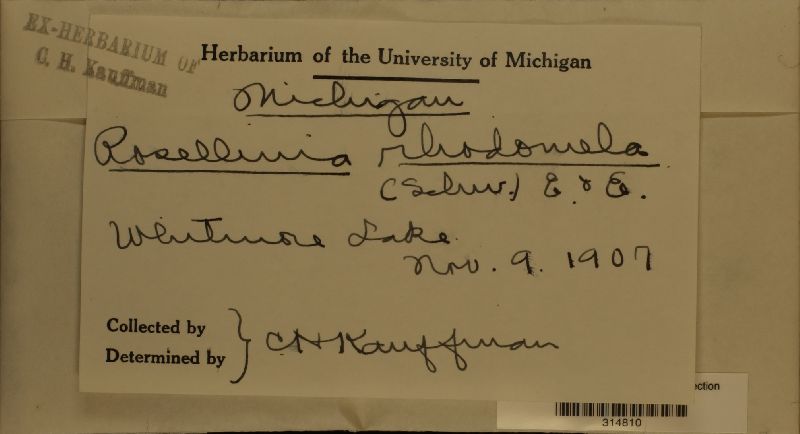 EX-HERBARIUM OF
C. H. Kauffman
Herbarium of the University of Michigan
Michigan
Rosellinia rhodomela
(Schw.) E. & E.
Whitmore Lake
Nov. 9. 1907
Collected by
Determined by } CH Kauffman
ection
314810